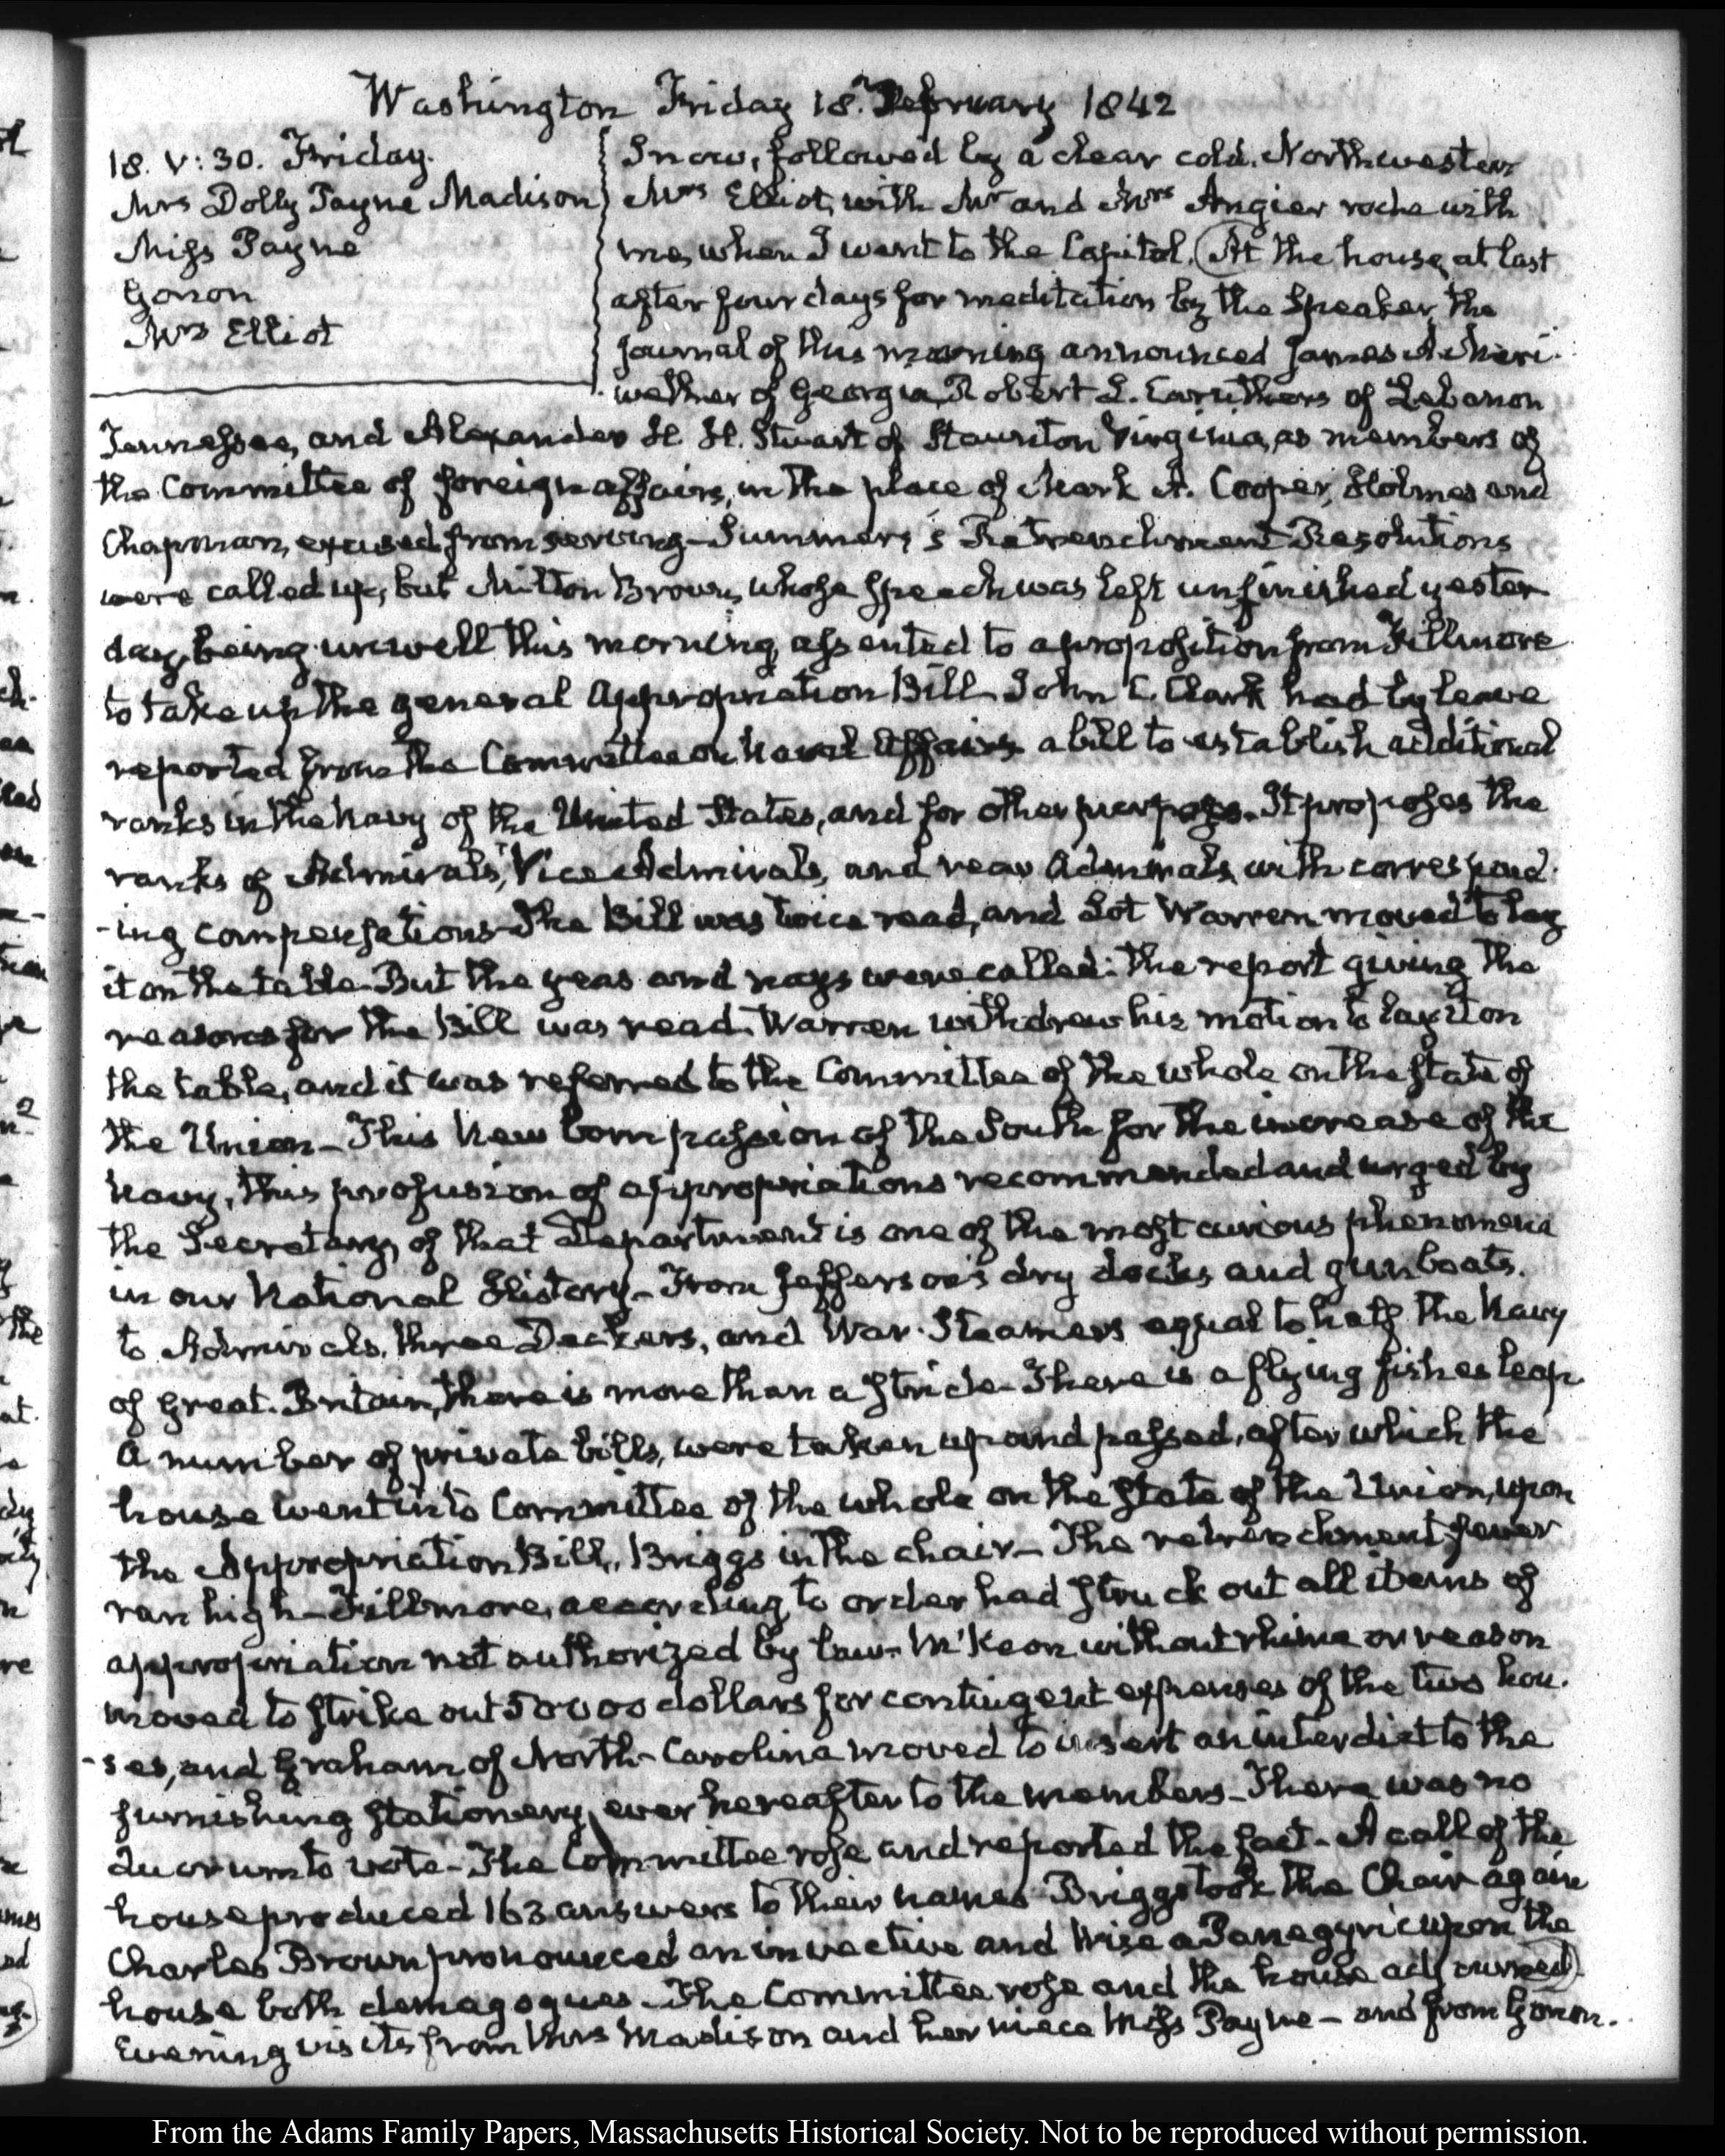 Washington Friday 18. February 1842
18. V:30. Friday.
Mrs Dolly Payne Madison
Miss Payne
Gonon
Mrs Elliot
Snow, followed by a clear cold. Northwester
Mrs Elliot, with Mr and Mrs Angier rode with
me, when I went to the Capitol. At the house, at last
after four days for meditation by the Speaker, the
journal of this morning announced James A Meri-
wether of Georgia, Robert L. Caruthers of Lebanon
Tennessee, and Alexander H. H. Stuart of Staunton Virginia, as members of
the Committee of foreign affairs, in the place of Mark A. Cooper, Holmes and
Chapman, excused from serving – Summers's Retrenchment Resolutions
were called up, but Milton Brown, whose speech was left unfinished yester
day, being unwell this morning, assented to a proposition from Fillmore
to take up the general Appropriation Bill. John C. Clark had by leave
reported from the Committee on Naval Affairs a bill to establish additional
ranks in the Navy of the United States, and for other purposes. It proposes the
ranks of Admirals, Vice Admirals, and rear Admirals, with correspond-
-ing compensations – The Bill was twice read, and Lot Warren moved to lay
it on the table – But the yeas and nays were called: the report giving the
reasons for the Bill was read. Warren withdrew his motion to lay it on
the table, and it was referred to the Committee of the whole on the state of
the Union – This new born passion of the South for the increase of the
Navy, this profusion of appropriations recommended and urged by
the Secretary, of that Department is one of the most curious phenomena
in our National History – From Jefferson's dry docks, and gun boats.
to Admirals, three Deckers, and War-Steamers equal to half the Navy
of Great-Britain, there is more than a stride – There is a flying fishes leap.
A number of private bills, were taken up and passed, after which the
house went into Committee of the whole on the state of the Union, upon
the Appropriation Bill, Briggs in the chair – The retrenchment fever
ran high – Fillmore, according to order had struck out all items of
appropriation not authorized by law. M'Keon without rhime or reason
moved to strike out 50000 dollars for contingent expenses of the two hou-
-ses, and Graham of North-Carolina moved to insert an interdict to the
furnishing stationery, ever hereafter to the members – There was no
Quorum to vote – The Committee rose and reported the fact – A call of the
house produced 163 answers to their names Briggs took the Chair again
Charles Brown pronounced an invective and Wise a Panegyric upon the
house both demagogues – The Committee rose and the house adjourned
Evening visits from Mrs Madison and her niece Miss Payne – and from Gonon.
From the Adams Family Papers, Massachusetts Historical Society. Not to be reproduced without permission.